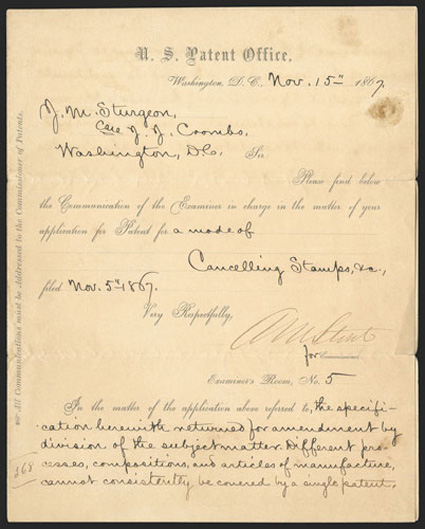 U. S. Patent Office,
Washington, D. C., Nov. 15th 1867.
J. M. Sturgeon,
Care J. J. Coombs.
Washington, D.C. Sir:
Please find below
the Communication of the Examiner in charge in the matter of your
application for Patent for a mode of
Cancelling Stamps, &c.,
filed Nov. 5th 1867.
Very Respectfully,
for Commissioner.
Examiner's Room, No. 5
In the matter of the application above referred to, the specifi-
-cation herewith returned for amendment by
division of the subject matter. Different pro-
cesses, compositions, and articles of manufacture,
cannot consistently be covered by a single patent.
All Communications must be Addressed to the Commissioner of Patents.
268